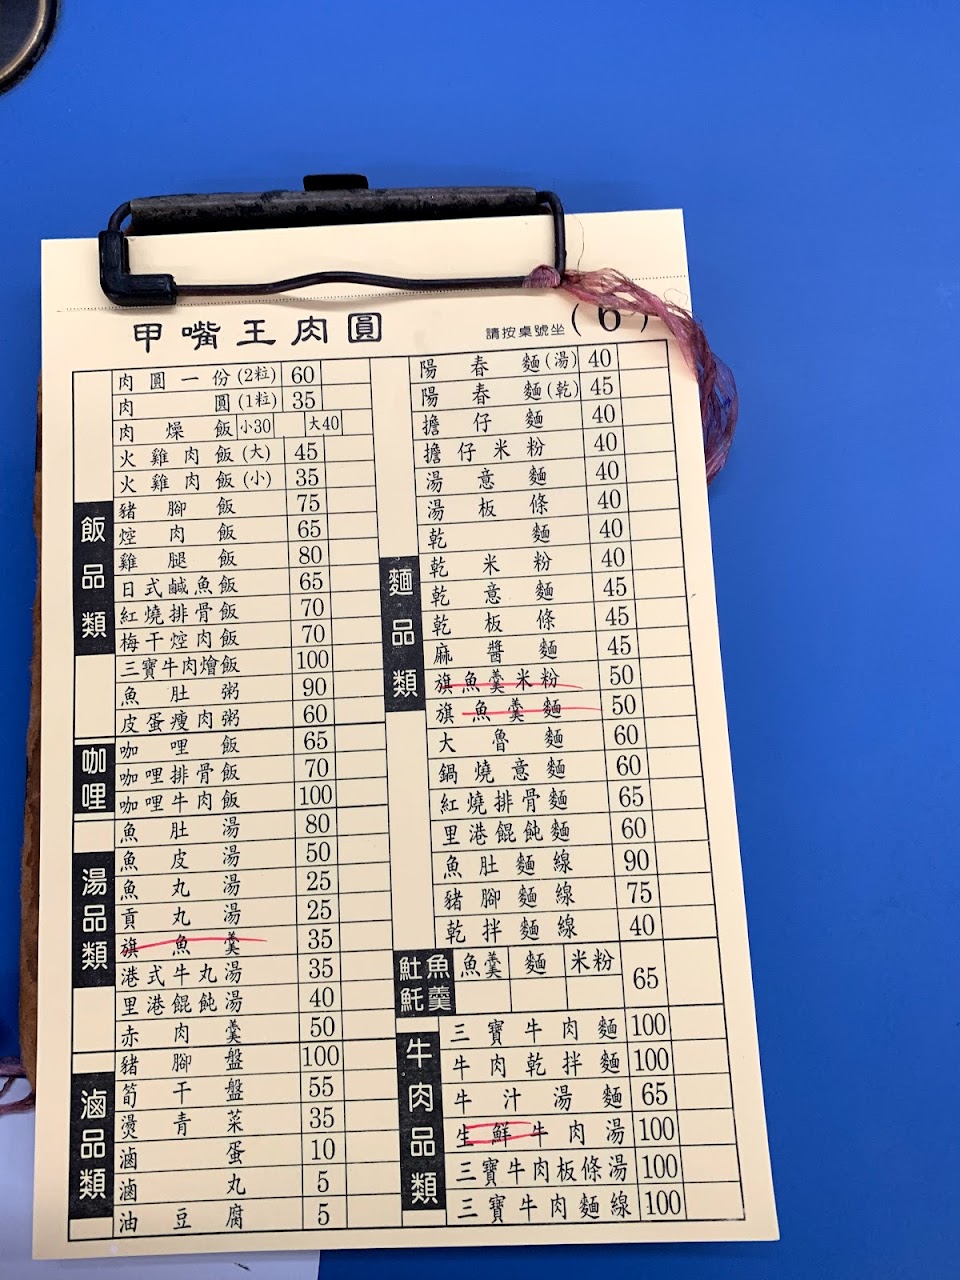 甲嘴王肉圓
請按桌號坐 (6)
肉圓一份(2粒) 60
肉圓(1粒) 35
肉燥飯 小30 大40
火雞肉飯(大) 45
火雞肉飯(小) 35
飯品類
豬腳飯 75
焢肉飯 65
雞腿飯 80
日式鹹魚飯 65
紅燒排骨飯 70
梅干焢肉飯 70
三寶牛肉燴飯 100
魚肚粥 90
皮蛋瘦肉粥 60
咖哩
咖哩飯 65
咖哩排骨飯 70
咖哩牛肉飯 100
湯品類
魚肚湯 80
魚皮湯 50
魚丸湯 25
貢丸湯 25
旗魚羹 35
港式牛丸湯 35
里港餛飩湯 40
赤肉羹 50
滷品類
豬腳盤 100
筍干盤 55
燙青菜 35
滷蛋 10
滷丸 5
油豆腐 5
麵品類
陽春麵(湯) 40
陽春麵(乾) 45
擔仔麵 40
擔仔米粉 40
湯意麵 40
湯板條 40
乾麵 40
乾米粉 40
乾意麵 45
乾板條 45
麻醬麵 45
旗魚羹米粉 50
旗魚羹麵 50
大魯麵 60
鍋燒意麵 60
紅燒排骨麵 65
里港餛飩麵 60
魚肚麵線 90
豬腳麵線 75
乾拌麵線 40
魚羹
魚羹 麵 米粉 65
牛肉品類
三寶牛肉麵 100
牛肉乾拌麵 100
牛汁湯麵 65
生鮮牛肉湯 100
三寶牛肉板條湯 100
三寶牛肉麵線 100